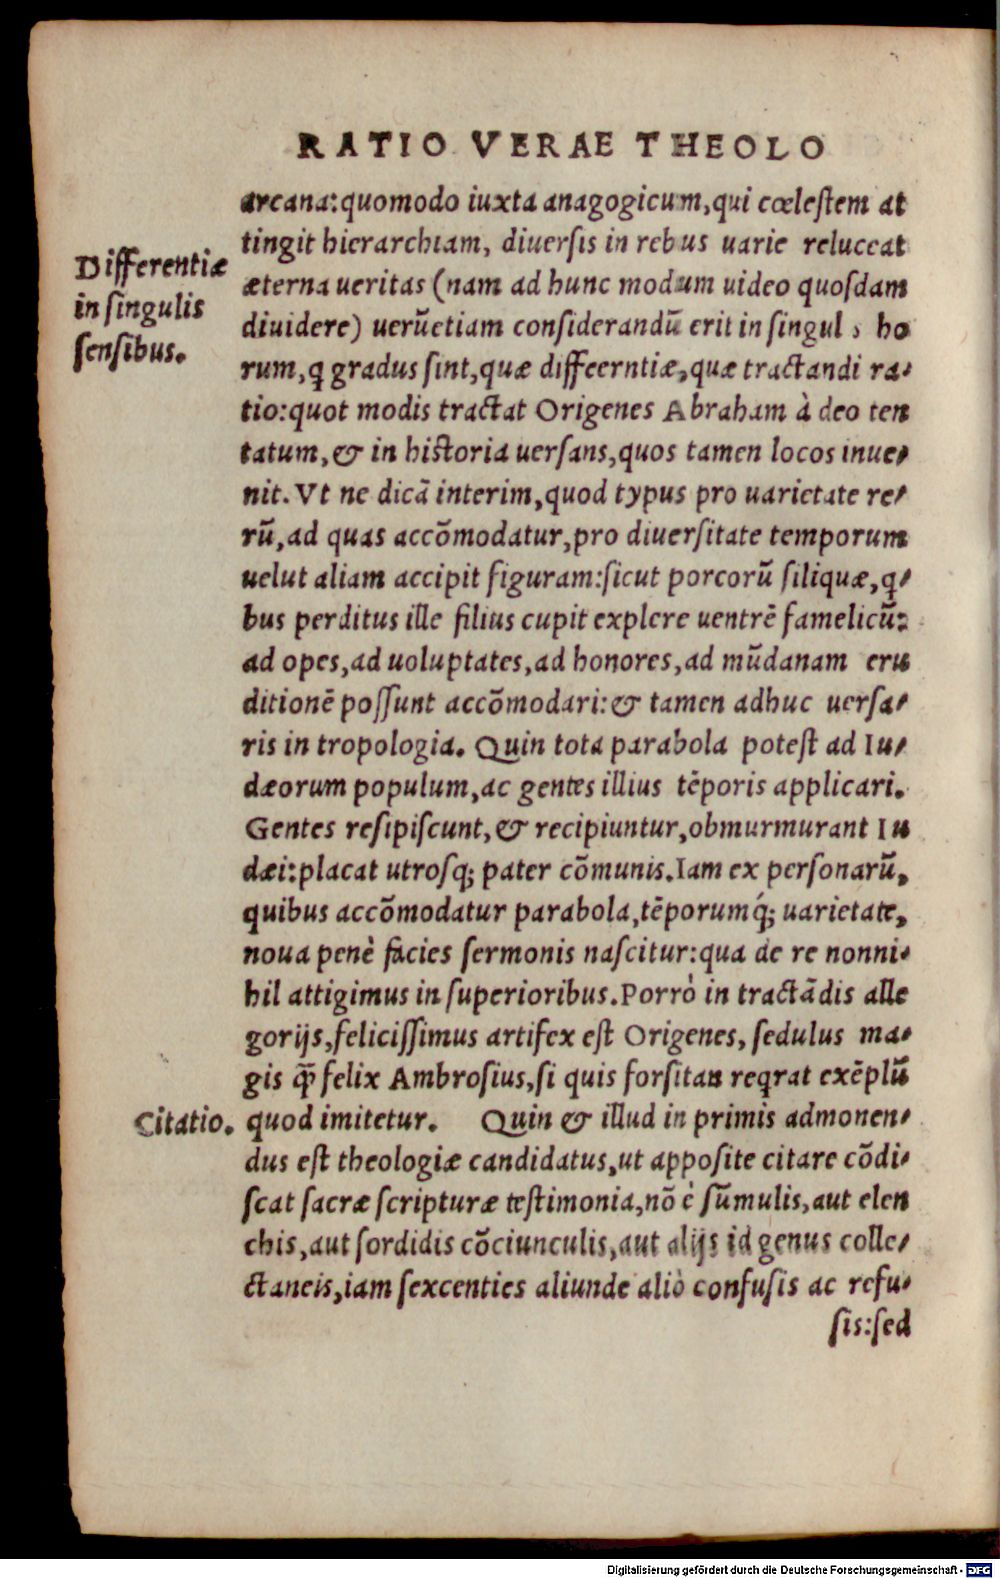 RATIO VERAE THEOLO
arcana: quomodo iuxta anagogicum, qui cœleſtem at
tingit hierarchiam, diuerſis in rebus uarie reluceat
Differentiæ
in ſingulis
ſenſibus.
æterna ueritas (nam ad hunc modum uideo quoſdam
diuidere) uerũetiam conſiderandũ erit in ſingul s ho
rum, ꝗ gradus ſint, quæ diffeerntiæ, quæ tractandi ra-
tio: quot modis tractat Origenes Abraham à deo ten
tatum, & in hiſtoria uerſans, quos tamen locos inue-
nit. Vt ne dicã interim, quod typus pro uarietate re-
rũ, ad quas accõmodatur, pro diuerſitate temporum
uelut aliam accipit figuram: ſicut porcorũ ſiliquæ, ꝗ-
bus perditus ille filius cupit explere uentrẽ famelicũ:
ad opes, ad uoluptates, ad honores, ad mũdanam eru
ditionẽ poſſunt accõmodari: & tamen adhuc uerſa-
ris in tropologia. Quin tota parabola poteſt ad Iu-
dæorum populum, ac gentes illius tẽporis applicari.
Gentes reſipiſcunt, & recipiuntur, obmurmurant Iu
dæi: placat utroſq; pater cõmunis. Iam ex perſonarũ,
quibus accõmodatur parabola, tẽporumq́; uarietate,
noua penè facies ſermonis naſcitur: qua de re nonni-
hil attigimus in ſuperioribus. Porrò in tractãdis alle
gorijs, feliciſſimus artifex eſt Origenes, ſedulus ma-
gis ꝗ̃ felix Ambroſius, ſi quis forſitan reꝗrat exẽplũ
Citatio.
quod imitetur. Quin & illud in primis admonen-
dus eſt theologiæ candidatus, ut appoſite citare cõdi-
ſcat ſacræ ſcripturæ teſtimonia, nõ è ſũmulis, aut elen
chis, aut ſordidis cõciunculis, aut alijs id genus colle-
ctaneis, iam ſexcenties aliunde aliò confuſis ac refu-
ſis: ſed
Digitalisierung gefördert durch die Deutsche Forschungsgemeinschaft - DFG